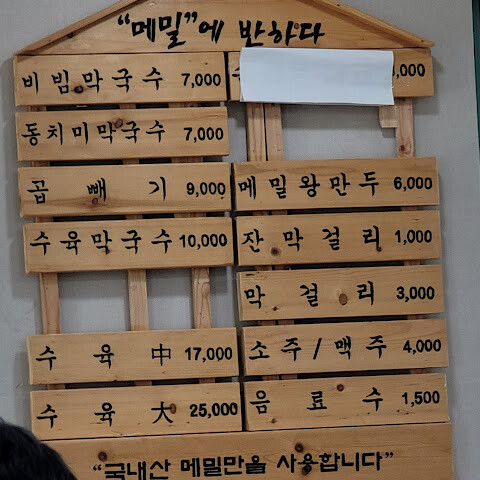 “메밀”에 반하다
비빔막국수 7,000
동치미막국수 7,000
곱빼기 9,000
수육막국수 10,000
수육 中 17,000
수육 大 25,000
,000
메밀왕만두 6,000
잔막걸리 1,000
막걸리 3,000
소주/맥주 4,000
음료수 1,500
“국내산 메밀만을 사용합니다”